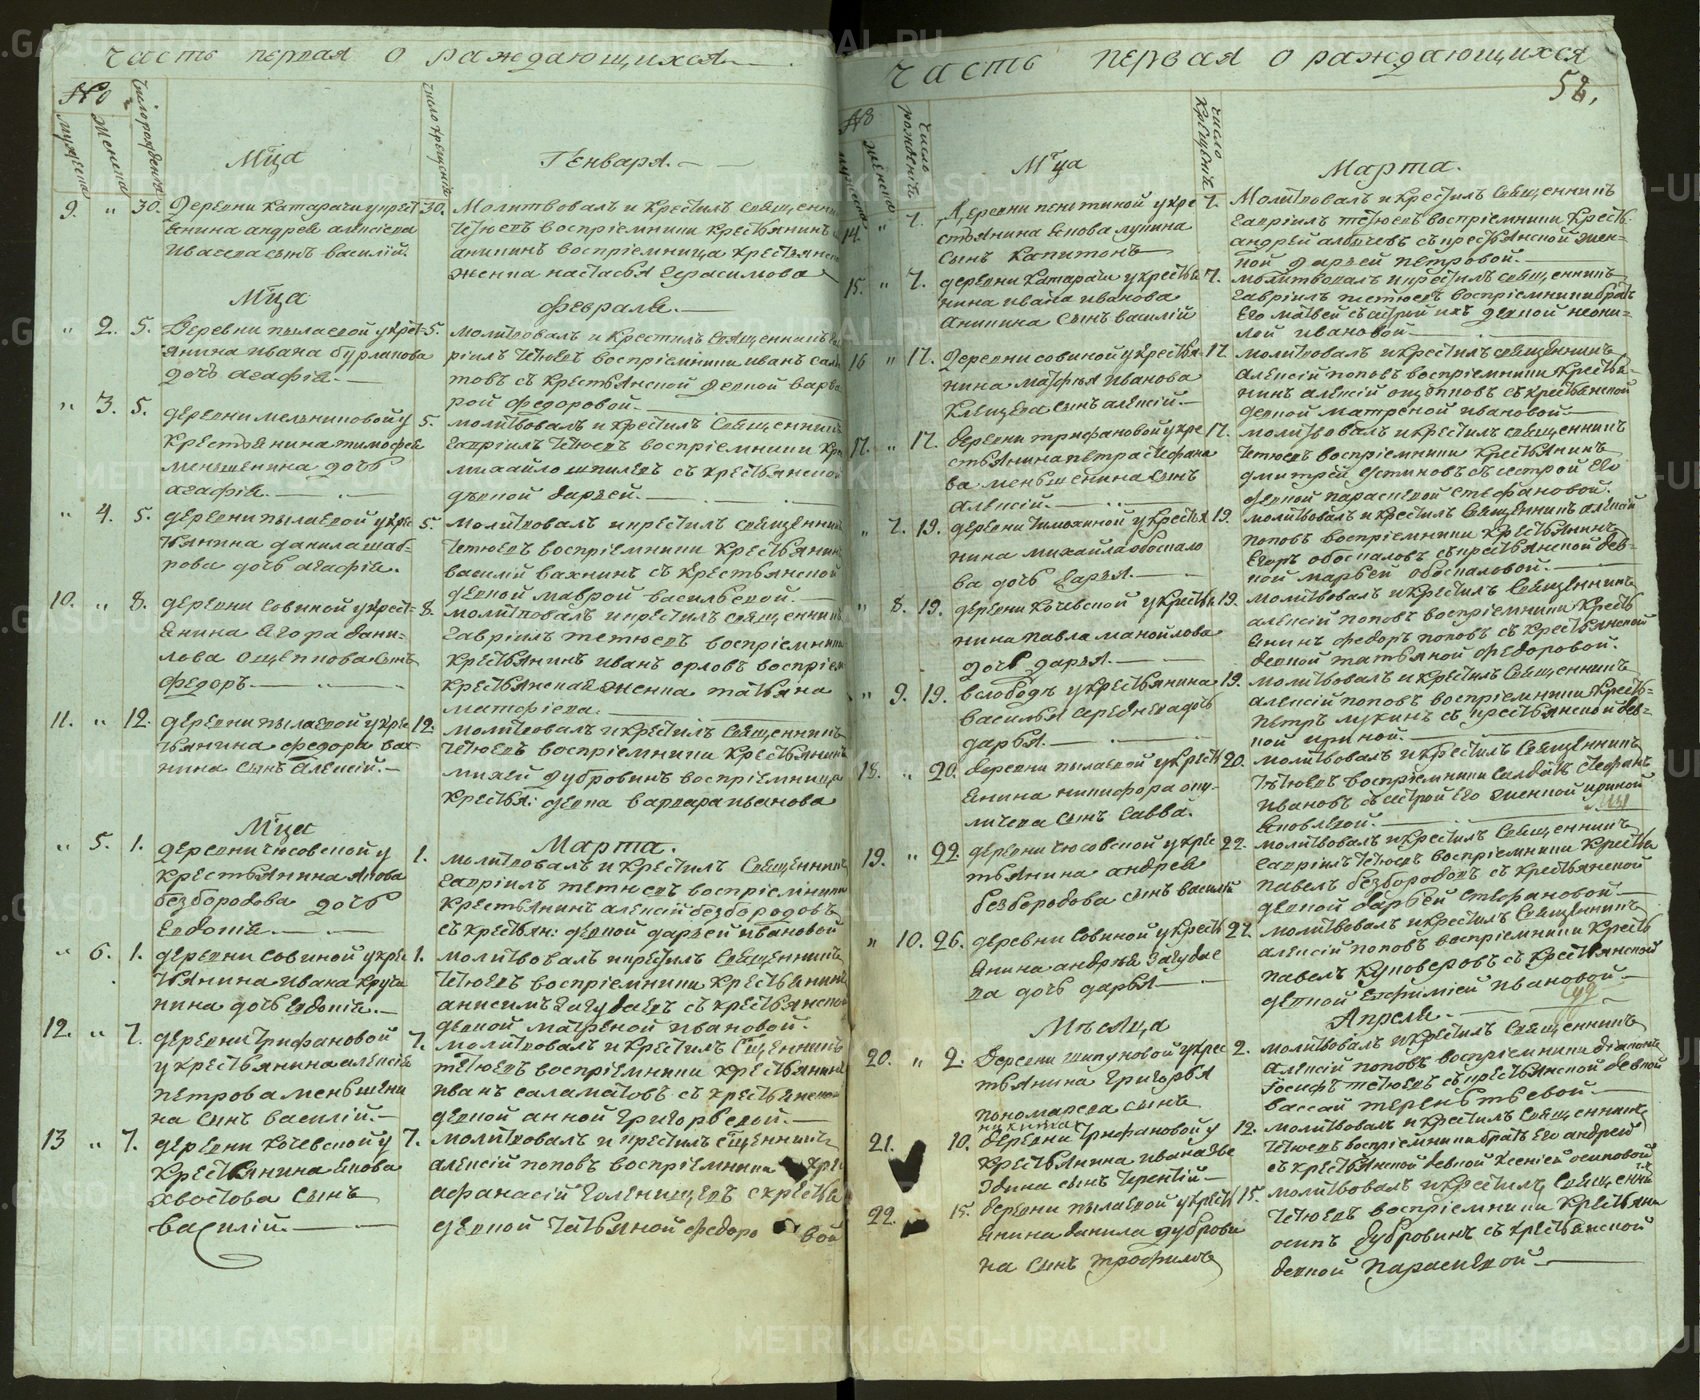 Часть первая о раждающихся
№
мужеска
Женска
Число рожденія
число крещенія
Мца Генваря.
9. " 30. Деревни Катарачи у крест-
янина андрея алексеева
Ивасева сынъ василій.
30. Молитвовалъ и Крестилъ Священни
Тетюевъ воспріемники Крестьянинъ
аникинъ воспріемница крестьянск
женка настасья Герасимова
Мца Февраля.
" 2. 5. Деревни пылаевой у крест-
янина ивана бурлакова
дочь агафія.
5. молитвовалъ и Крестилъ Священникъ Га
ріилъ Тетюевъ воспріемники иванъ сала
товъ съ Крестьянской девкой варва
рой федоровой.
" 3. 5. деревни мельниковой у
Крестьянина тимофея
меньшенина дочь
агафія.
5. молитвовалъ и крестилъ Священникъ
Гавріилъ Тетюевъ воспріемники Кр
михайло шпилевъ съ крестьянской
девкой дарьей.
" 4. 5. деревни пылаевой у кре
тьянина данила шаб-
рова дочь агафія.
5. молитвовалъ и крестилъ священник
Тетюевъ воспріемники Крестьянин
василій вахнинъ съ Крестьянской
девкой маврой васильевой.
10. " 8. деревни Совиной у крест-
янина Егора дани-
лова Ощепкова сынъ
Федоръ.
8. молитвовалъ и крестилъ священникъ
Гавріилъ тетюевъ воспріемники
Крестьянинъ иванъ орловъ воспріем
крестьянская женка татьяна
матфіева.
11. " 12. деревни пылаевой у кре
тьянина федора вах-
нина сынъ Алексій.
12. молитвовалъ и крестилъ Священникъ
Тетюевъ воспріемники Крестьянинъ
михей дубровинъ воспріемница
Крестья: девка варвара иванова
Мца Марта.
" 5. 1. деревни чюсовской у
крестьянина якова
безбородова дочь
Евдокія.
1. молитвовалъ и Крестилъ Священник
Гавріилъ тетюевъ воспріемники
Крестьянинъ алексій безбородовъ
съ крестьян: девкой дарьей ивановой
" 6. 1. деревни совиной у кре
тьянина ивана круче
нина дочь Евдокія.
1. молитвовалъ и крестилъ Священникъ
Тетюевъ воспріемники Крестьянинъ
анисимъ Загудаевъ съ крестьянской
девкой матреной ивановой.
12. " 7. деревни трифановой
у крестьянина алексія
петрова меньшени
на сынъ василій.
7. молитвовалъ и Крестилъ Сщенникъ
тетюевъ воспріемники крестьянинъ
иванъ саламатовъ съ крестьянской
девкой анной григорьевой.
13 " 7. деревни кочевской у
Крестьянина якова
хвостова сынъ
василій.
7. молитвовалъ и крестилъ Сщенникъ
алексій поповъ воспріемники кре
афанасій Голенищевъ с крестья
девкой татьяной федоро вой
Часть первая о раждающихся
58,
№
мужеска
женска
Число рожденія
Число крещенія
Мца Марта.
14. " 7. Деревни пеньтиной у кре
стьянина якова лукина
сынъ капитонъ
7. Молитвовалъ и крестилъ Священникъ
Гавріилъ тетюевъ воспріемники Кресть:
андрей алычевъ съ крестьянской жен-
кой дарьей петровой.
15. " 7. деревни катарачи у крестья
нина ивана иванова
аникина сынъ василій
7. молитвовалъ и крестилъ священникъ
Гавріилъ тетюевъ воспріемники братъ
Его матвей съ сестрой ихъ девкой неони-
лой ивановой.
16 " 17. Деревни совиной у крестья-
нина матфея иванова
Клещева сынъ алексій.
17. молитвовалъ и крестилъ священникъ
алексій поповъ воспріемники крестья-
нинъ алексій ощепковъ съ крестьянской
девкой матреной ивановой.
17. " 17. деревни трифановой у кре
стьянина петра стефано
ва меньшенина сынъ
алексій.
17. молитвовалъ и крестилъ священникъ
Тетюевъ воспріемники крестьянинъ
дмитрей устиновъ съ сестрой его
девкой парасковой стефановой.
" 7. 19. деревни тимохиной у крестья
нина михайла обоскало
ва дочь дарья.
19. молитвовалъ и крестилъ Священникъ алексій
поповъ воспріемники крестьянинъ
Егоръ обоскаловъ съ крестьянской дев-
кой марьей обоскаловой.
" 8. 19. деревни кочевской у крестья
нина павла манойлова
дочь дарья.
19. молитвовалъ и крестилъ Священникъ
алексій поповъ воспріемники кресть
янинъ федоръ поповъ съ крестьянской
девкой татьяной федоровой.
" 9. 19. вслободѣ у крестьянина
василья середнева дочь
дарья.
19. молитвовалъ и крестилъ Священникъ
алексій поповъ воспріемники кресть-
петръ лукинъ съ крестьянской дев-
кой ириной.
18. " 20. деревни пылаевой у крест
янина никифора опу-
личева сынъ Савва.
20. молитвовалъ и крестилъ Священникъ
Тетюевъ воспріемники салдатъ стефанъ
ивановъ съ сестрой его женкой ириной
Яковлевой.
19. " 22. деревни чюсовской у кре
тьянина андрея
безбородова сынъ василій
22. молитвовалъ и крестилъ Священникъ
Гавріилъ Тетюевъ воспріемники крестья
павелъ безбородовъ съ крестьянской
девкой дарьей стефановой
" 10. 26. деревни совиной у кресть
янина андрея Загудае
ва дочь дарья
27. молитвовалъ и крестилъ Священникъ
алексій поповъ воспріемники кресть
павелъ куповеровъ съ крестьянской
девкой Евфиміей ивановой
Мѣсяца Апреля.
20. " 2. Деревни шипуновой у крес
тьянина Григорья
пономарева сынъ
никита
2. молитвовалъ и крестилъ Священникъ
алексій поповъ воспріемники діаконъ
Іосифъ тетюевъ съ крестьянской девкой
вассой терентьевой
21. 10. деревни трифановой у
крестьянина ивана Зве
здина сынъ терентій
12. молитвовалъ и крестилъ Священникъ
тетюевъ воспріемники братъ его андрей
съ крестьянской девкой ксеніей осиповой
22. 15. деревни пылаевой у крестья
янина данила дуброви
на сынъ трофимъ
15. молитвовалъ и крестилъ Священникъ
Тетюевъ воспріемники крестьяни
осипъ дубровинъ съ крестьянской
девкой парасковой